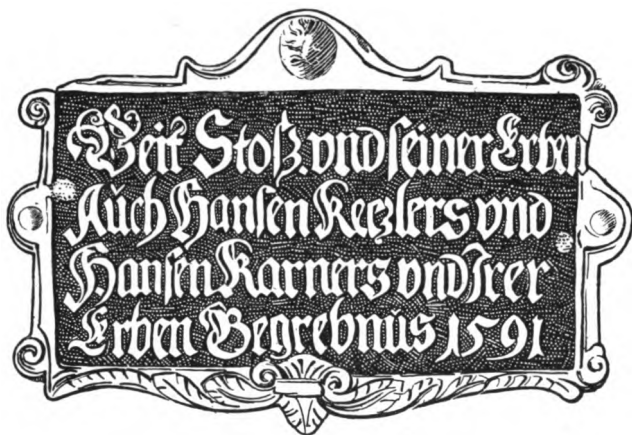 Veit Stoß. vnd seiner Erben
Aůch Hansen Keczlers vnd
Hansen Karners vnd Irer
Erben Begrebnůs 1591